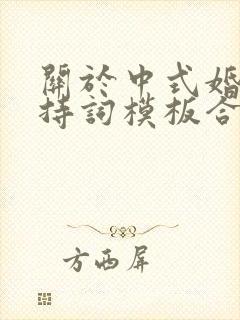 關於中式婚
持詞模板合
方西屏